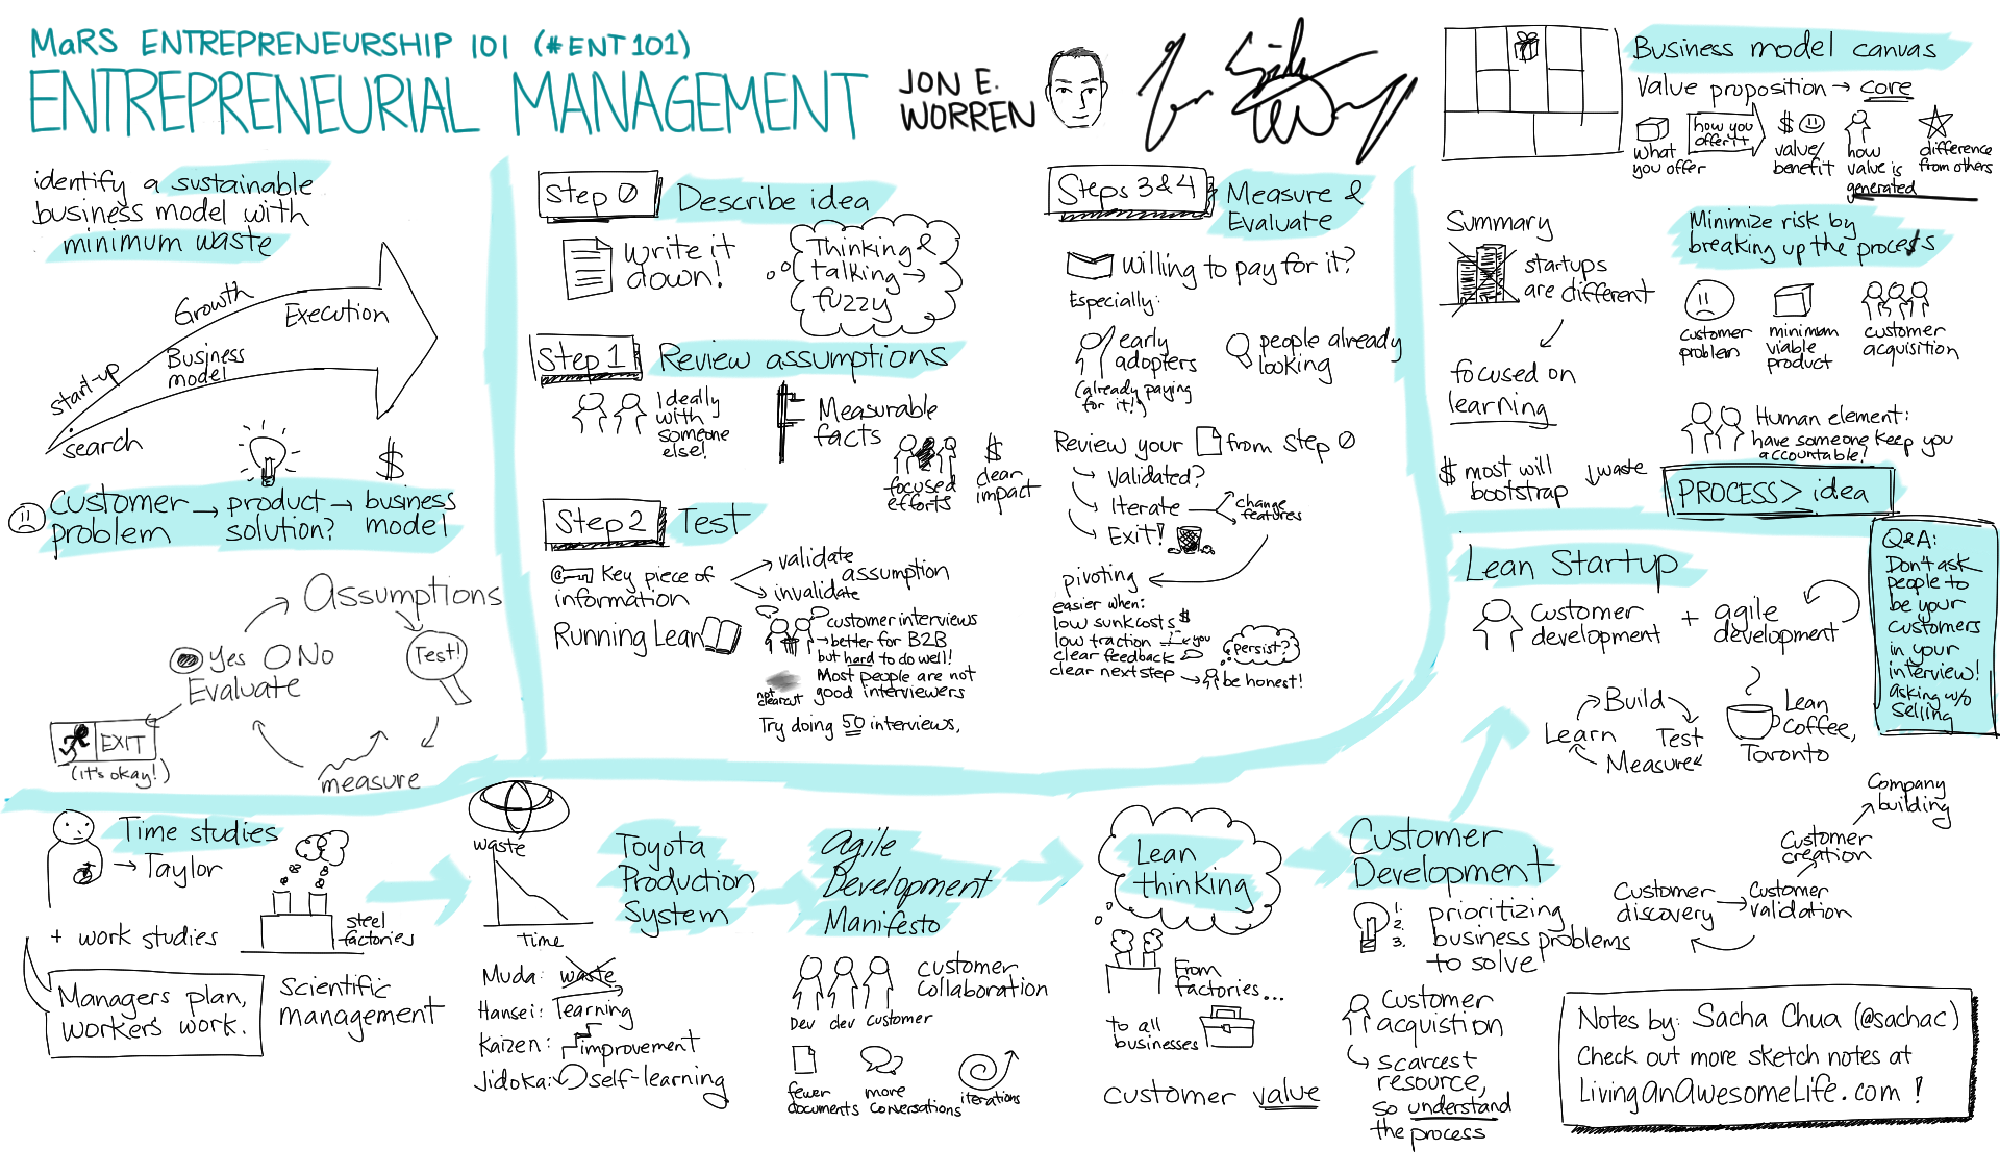 MaRS ENTREPRENEURSHIP 101 (#ENT101)
ENTREPRENEURIAL MANAGEMENT
JON E.
WORREN
identify a sustainable
business model with
minimum waste
Growth
Execution
Business
model
start-up
search
Customer
problem
→ product
solution?
→ business
model
$
Assumptions
Test!
measure
Yes No
Evaluate
EXIT
(it's okay!)
Step 0
Describe idea
write it
down!
Thinking &
talking →
fuzzy
Step 1
Review assumptions
Ideally
with
someone
else!
Measurable
facts
focused
efforts
$
clear
impact
Step 2
Test
Key piece of
information
validate
invalidate
assumption
Running Lean
customer interviews
→ better for B2B
but hard to do well!
Most people are not
good interviewers
not
clearcut
Try doing 50 interviews.
Steps 3 & 4
Measure &
Evaluate
willing to pay for it?
Especially:
early
adopters
(already paying
for it!)
people already
looking
Review your from Step 0
→ Validated?
→ Iterate
change
features
→ Exit!
pivoting
easier when:
low sunk costs $
low traction
you
clear feedback
clear next step
Persist?
be honest!
Business model canvas
Value proposition → core
what
you offer
how you
offer it
$
value/
benefit
how
value is
generated
difference
from others
Summary
startups
are different
focused on
learning
$ most will
bootstrap
↓waste
Minimize risk by
breaking up the process
customer
problem
minimum
viable
product
customer
acquisition
Human element:
have someone keep you
accountable?
PROCESS > idea
Lean Startup
Customer
development
+ agile
development
Build
Test
Measure
Learn
Lean
Coffee,
Toronto
Q&A:
Don't ask
people to
be your
customers
in your
interview!
Asking w/o
selling
Time studies
→ Taylor
+ work studies
Managers plan,
workers work.
steel
factories
Scientific
management
waste
Time
Muda: waste
Hansei: learning
Kaizen: improvement
Jidoka: self-learning
Toyota
Production
System
Agile
Development
Manifesto
Dev dev customer
customer
collaboration
fewer
documents
more
conversations
iterations
Lean
thinking
From
factories...
to all
businesses
customer value
Customer
Development
1.
2.
3.
prioritizing
business problems
to solve
Customer
acquistion
↳ scarcest
resource,
so understand
the process
Customer
discovery
→ Customer
validation
Customer
creation
Company
building
Notes by: Sacha Chua (@sachac)
Check out more sketch notes at
LivingAnAwesomeLife.com!